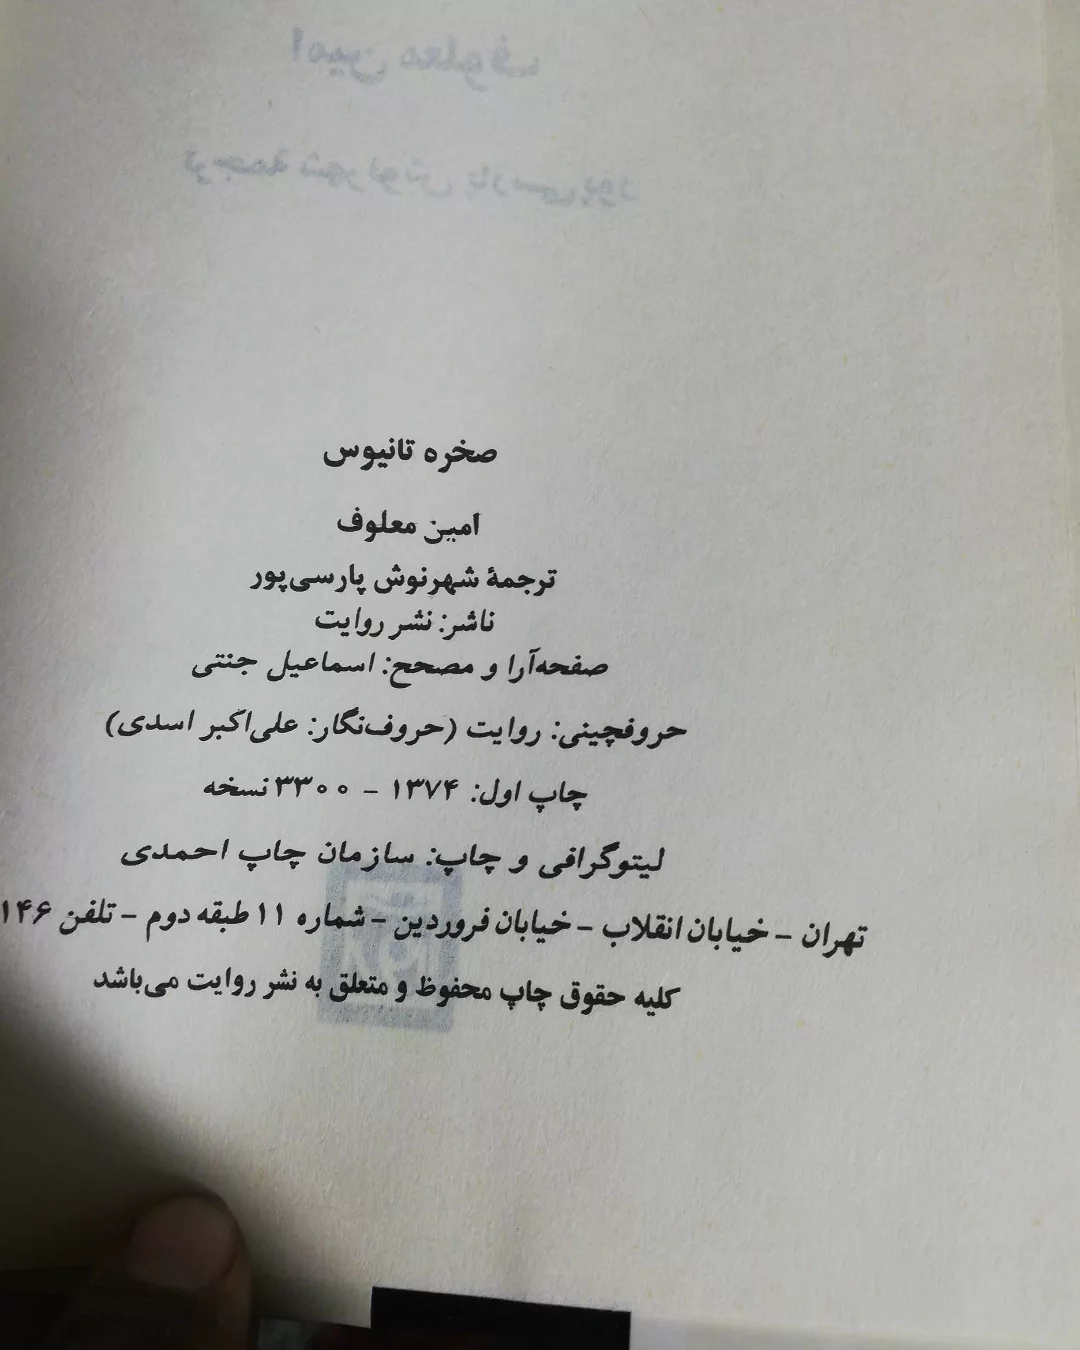 امین معلوف
ترجمهٔ شهرنوش پارسی‌پور
صخره تانیوس
امین معلوف
ترجمهٔ شهرنوش پارسی‌پور
ناشر: نشر روایت
صفحه‌آرا و مصحح: اسماعیل جنتی
حروفچینی: روایت (حروف‌نگار: علی‌اکبر اسدی)
چاپ اول: ۱۳۷۴ – ۳۳۰۰ نسخه
لیتوگرافی و چاپ: سازمان چاپ احمدی
تهران – خیابان انقلاب – خیابان فروردین – شماره ۱۱ طبقه دوم – تلفن ۱۴۶
کلیه حقوق چاپ محفوظ و متعلق به نشر روایت می‌باشد